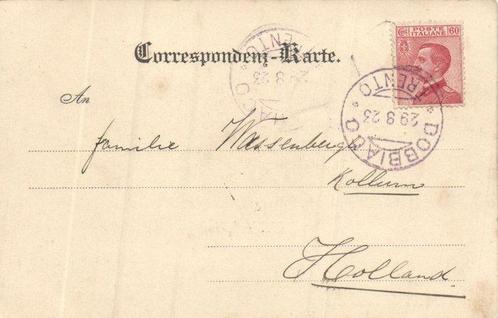 POSTE ITALIANE 60
Correspondenz-Karte.
TRENTO
29 8 23
DOBBIACO
TRENTO
29 8 23
An
familie Wassenbergh
Kollum
Holland.